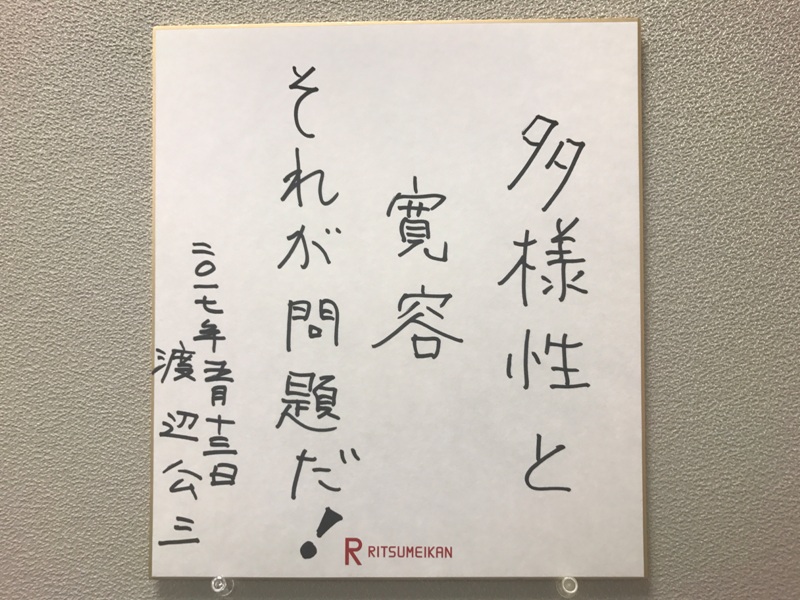 多様性と
寛容
それが問題だ!
二〇一七年五月十三日
渡辺公三
R RITSUMEIKAN